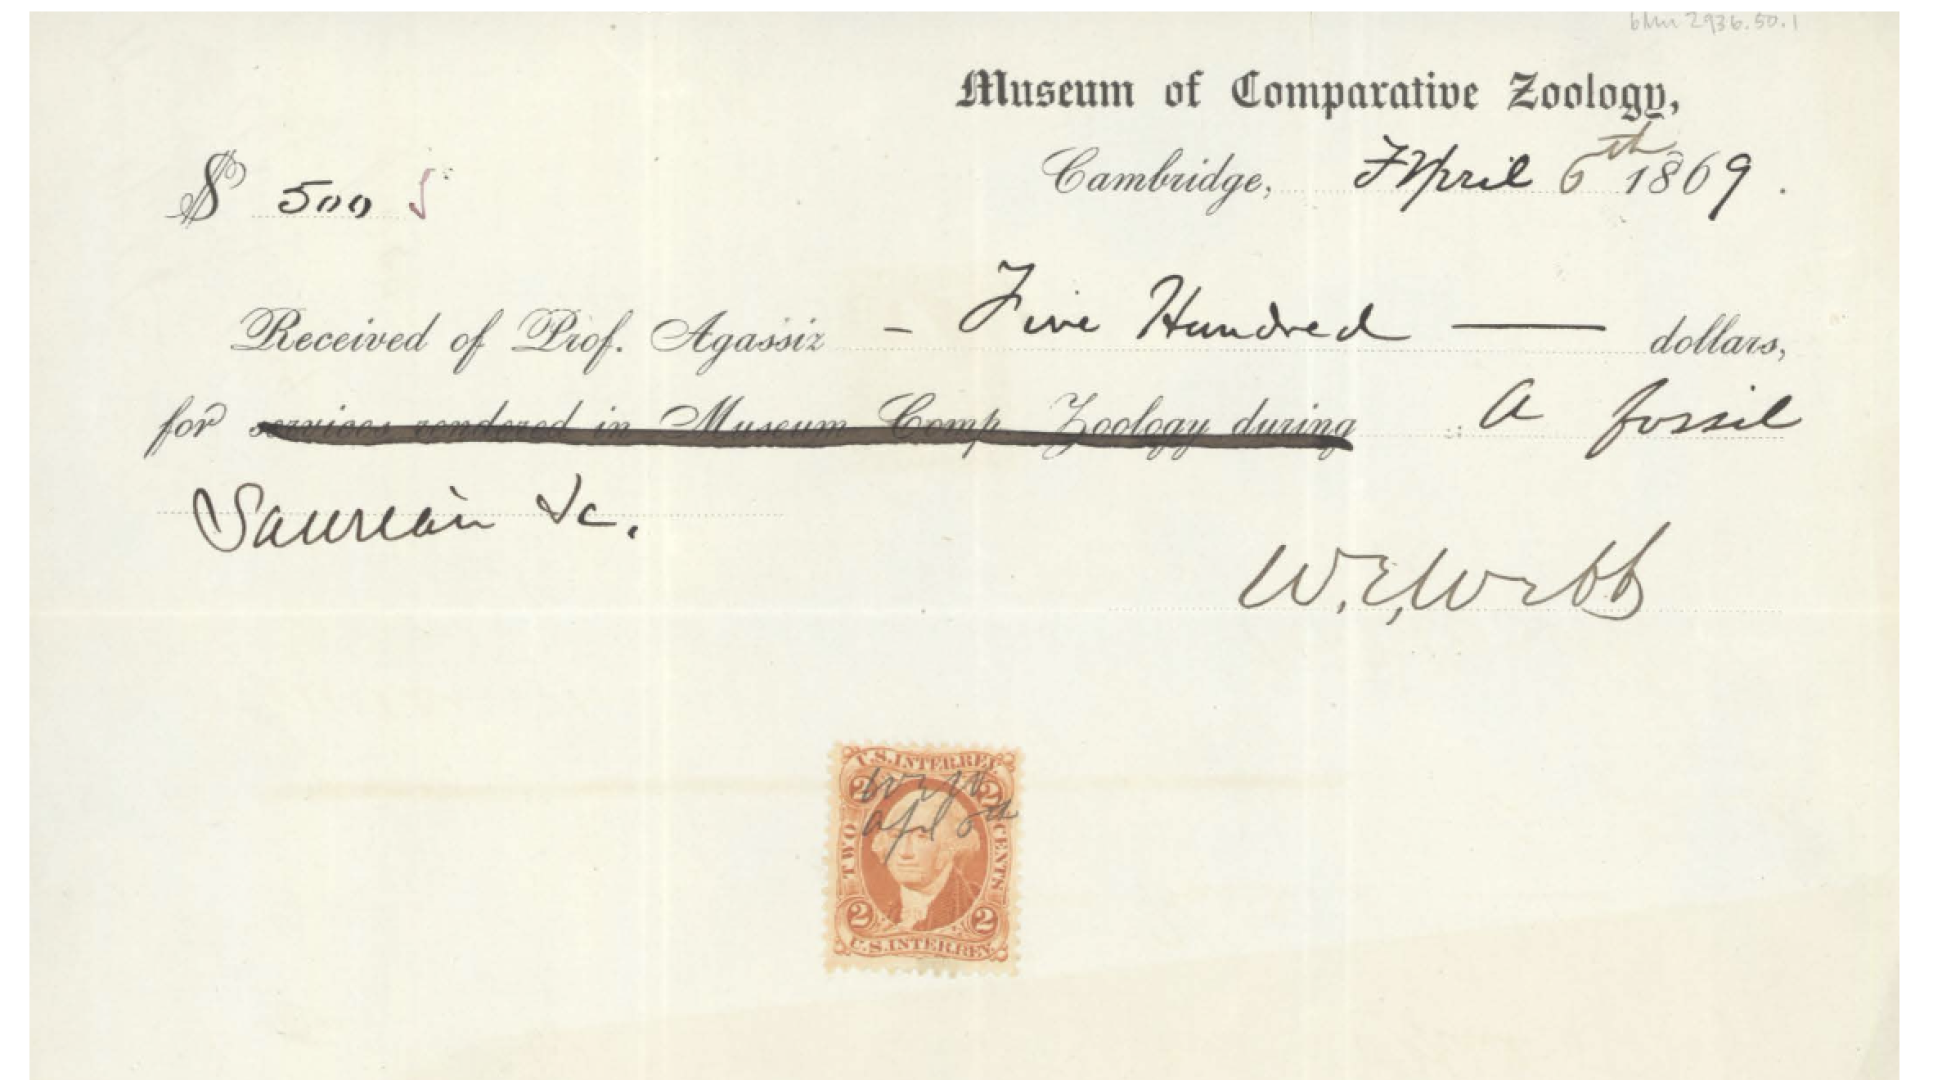 bMu 2936.50.1
Museum of Comparative Zoology,
Cambridge, April 6th 1869.
$ 500
Received of Prof. Agassiz - Five Hundred — dollars,
for services rendered in Museum Comp. Zoology during A fossil
Saurian &c.
W.E. Webb
U.S. INTER. REV.
2 2
TWO CENTS
2 2
U.S. INTER. REV.